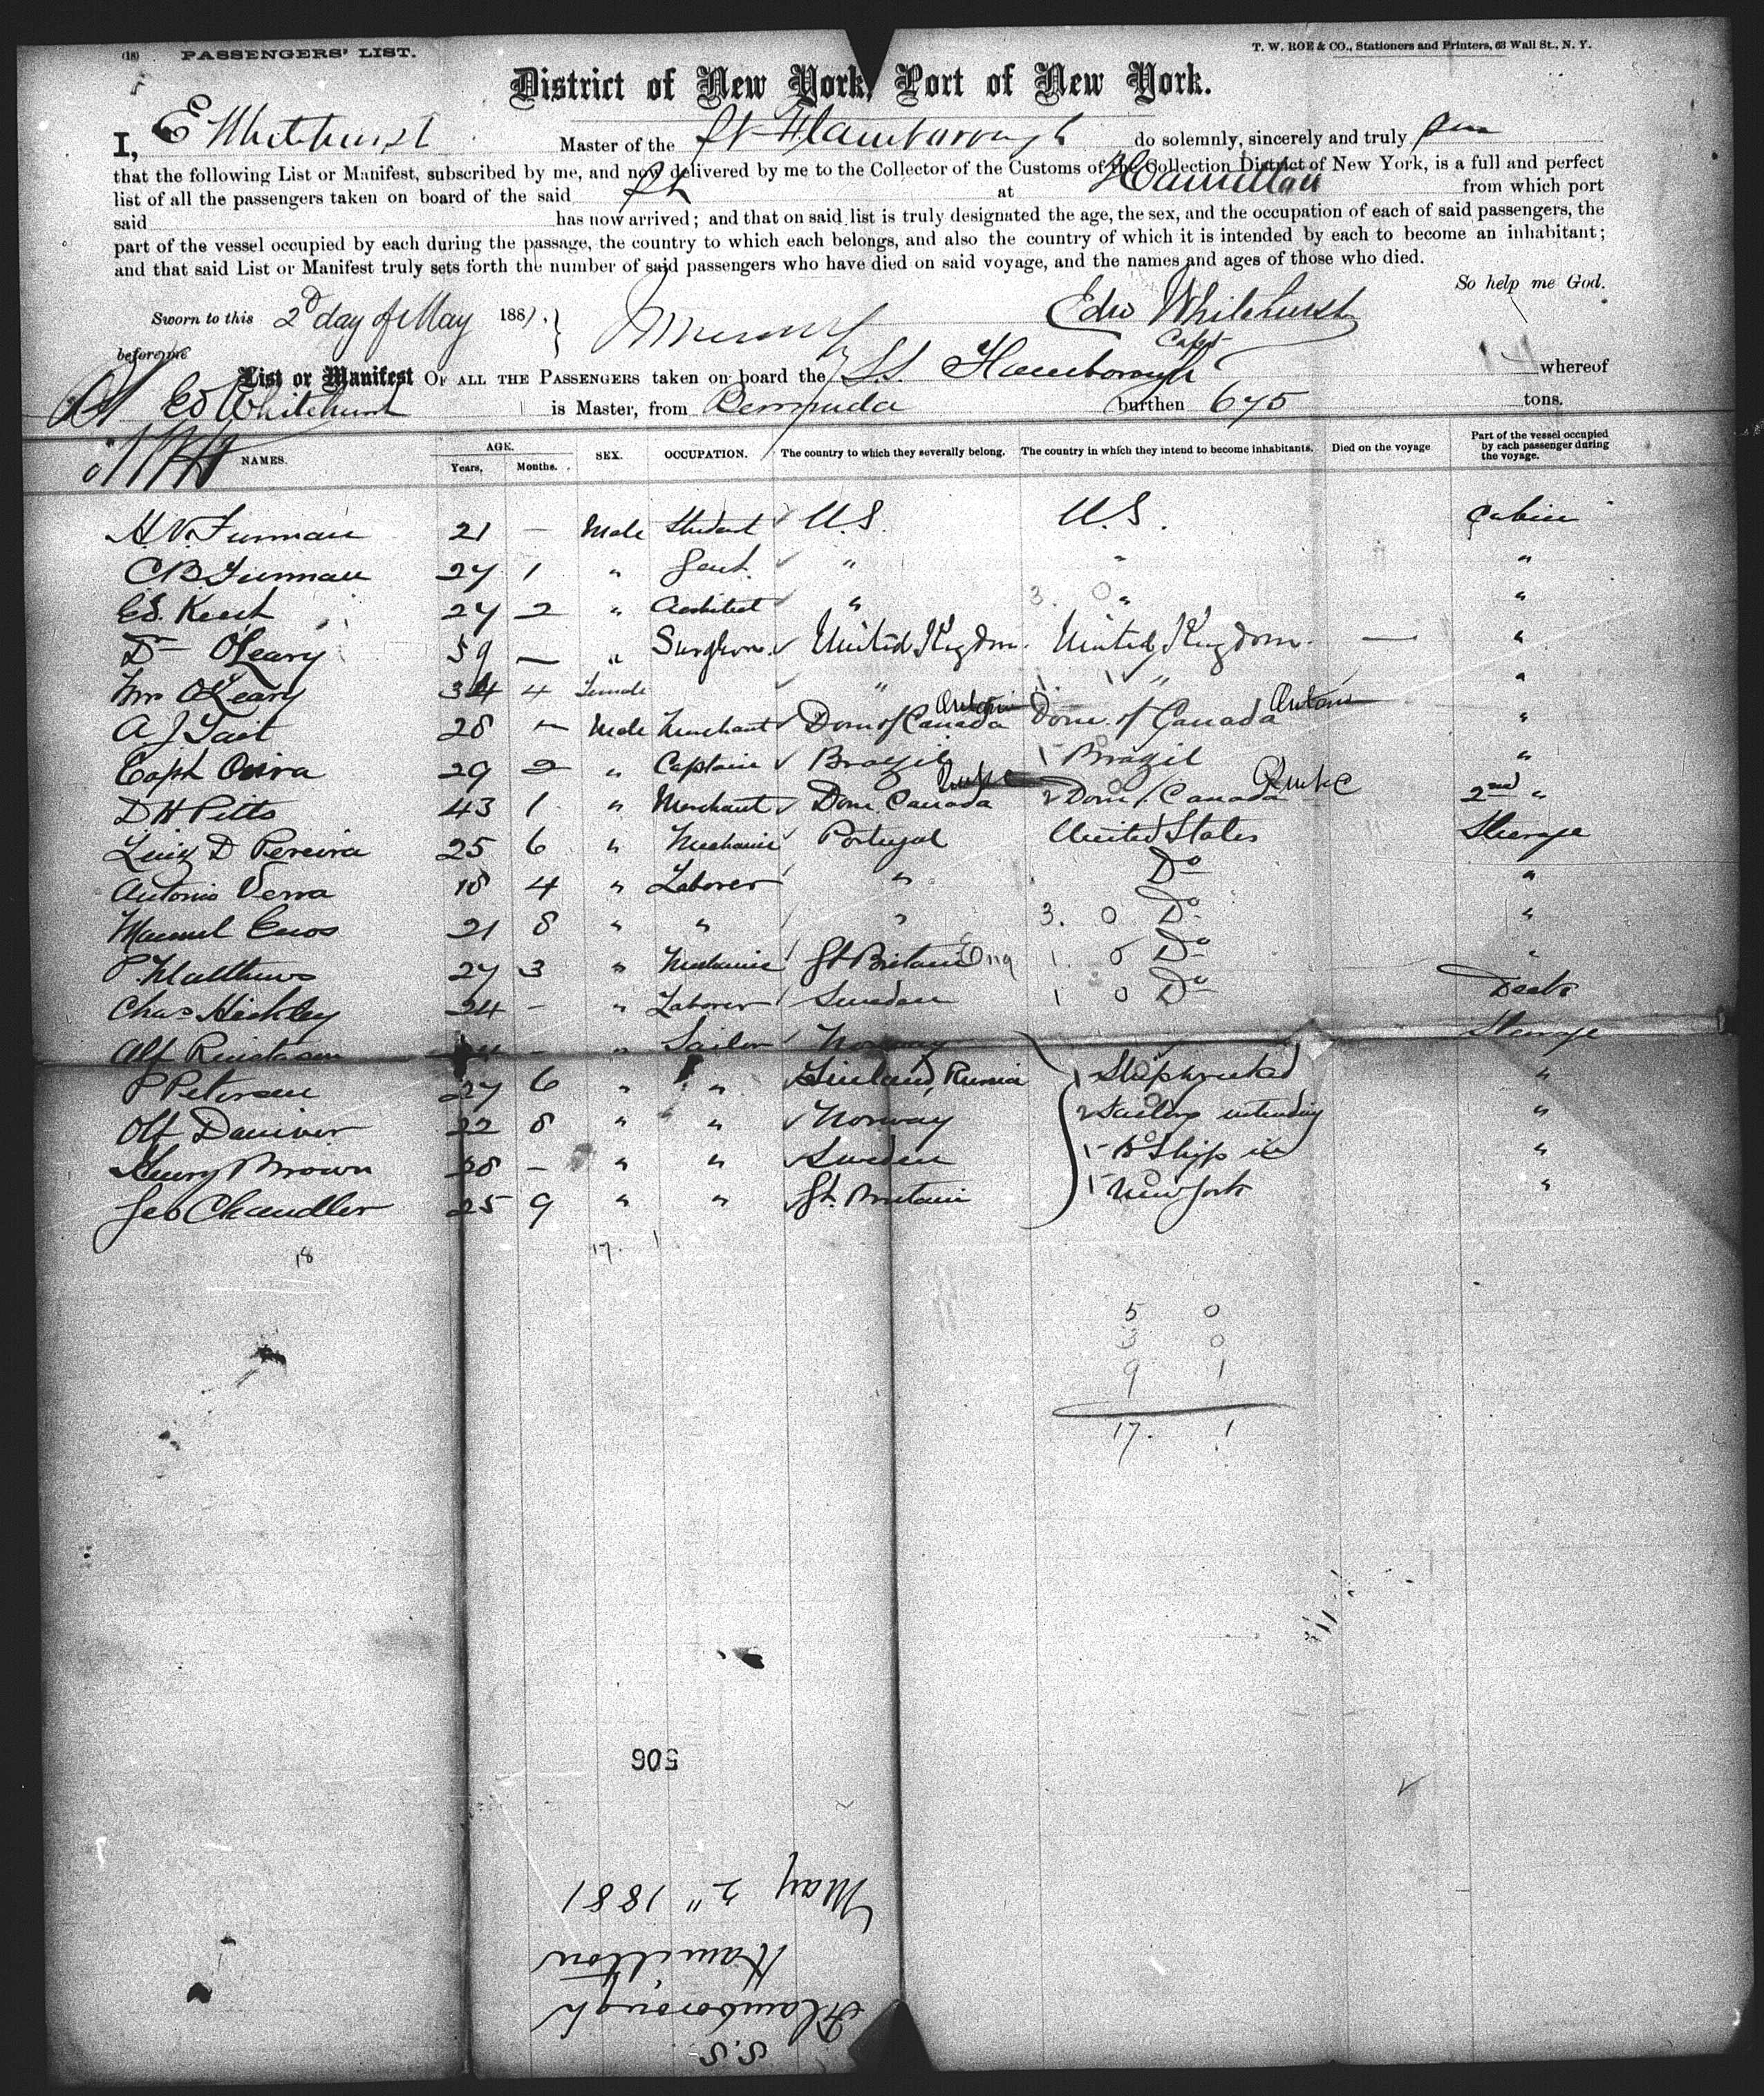 (18) PASSENGERS' LIST. T. W. ROE & CO., Stationers and Printers, 63 Wall St., N. Y.
District of New York, Port of New York.
I, E Whitehurst Master of the Flamborough do solemnly, sincerely and truly
that the following List or Manifest, subscribed by me, and now delivered by me to the Collector of the Customs of the Collection District of New York, is a full and perfect
list of all the passengers taken on board of the said at Hamilton from which port
said has now arrived; and that on said list is truly designated the age, the sex, and the occupation of each of said passengers, the
part of the vessel occupied by each during the passage, the country to which each belongs, and also the country of which it is intended by each to become an inhabitant;
and that said List or Manifest truly sets forth the number of said passengers who have died on said voyage, and the names and ages of those who died.
So help me God.
Sworn to this 2d day of May 1881. Edw Whitehurst
before me Capt
List or Manifest OF ALL THE PASSENGERS taken on board the S.S. Flamborough whereof
Ed Whitehurst is Master, from Bermuda burthen 675 tons.
NAMES. AGE. Years. Months. SEX. OCCUPATION. The country to which they severally belong. The country in which they intend to become inhabitants. Died on the voyage Part of the vessel occupied by each passenger during the voyage.
H. V. Furman 21 — Male Student U.S. U.S. Cabin
C B Furman 27 1 " Gent. " " "
Ed. Kent 27 2 " Architect " 3. 0 " "
Dr O'Leary 59 — " Surgeon United Kingdom. United Kingdom. — "
Mrs O'Leary 34 4 Female " " "
A J Tait 28 — Male Merchant Dom of Canada Ontario Dom. of Canada Ontario "
Capt Oliva 29 2 " Captain Brazil 1 Brazil "
D H Pitts 43 1 " Merchant Dom. Canada Quebec 2 Dom. Canada Quebec 2nd "
Luiz D Pereira 25 6 " Mechanic Portugal United States Steerage
Antonio Verra 18 4 " Laborer " Do "
Manuel Enos 21 8 " " " 3. 0 Do "
P. Matthews 27 3 " Mechanic Gt Britain Eng 1. 0 Do "
Chas Hickley 24 - " Laborer Sweden 1 0 Do Deck
Alf - " Sailor Norway Steerage
P Petersen 27 6 " " Finland, Russia 1 Shipwrecked "
Olf 22 8 " " Norway 2 Sailors intending "
Henry Brown 28 - " " Sweden 1 to Ship in "
Geo Chandler 25 9 " " Gt. Britain 1 New York "
18 17. 1
5 0
3 0
9 1
17. 1
506
S.S.
Flamborough
Hamilton
May 2" 1881